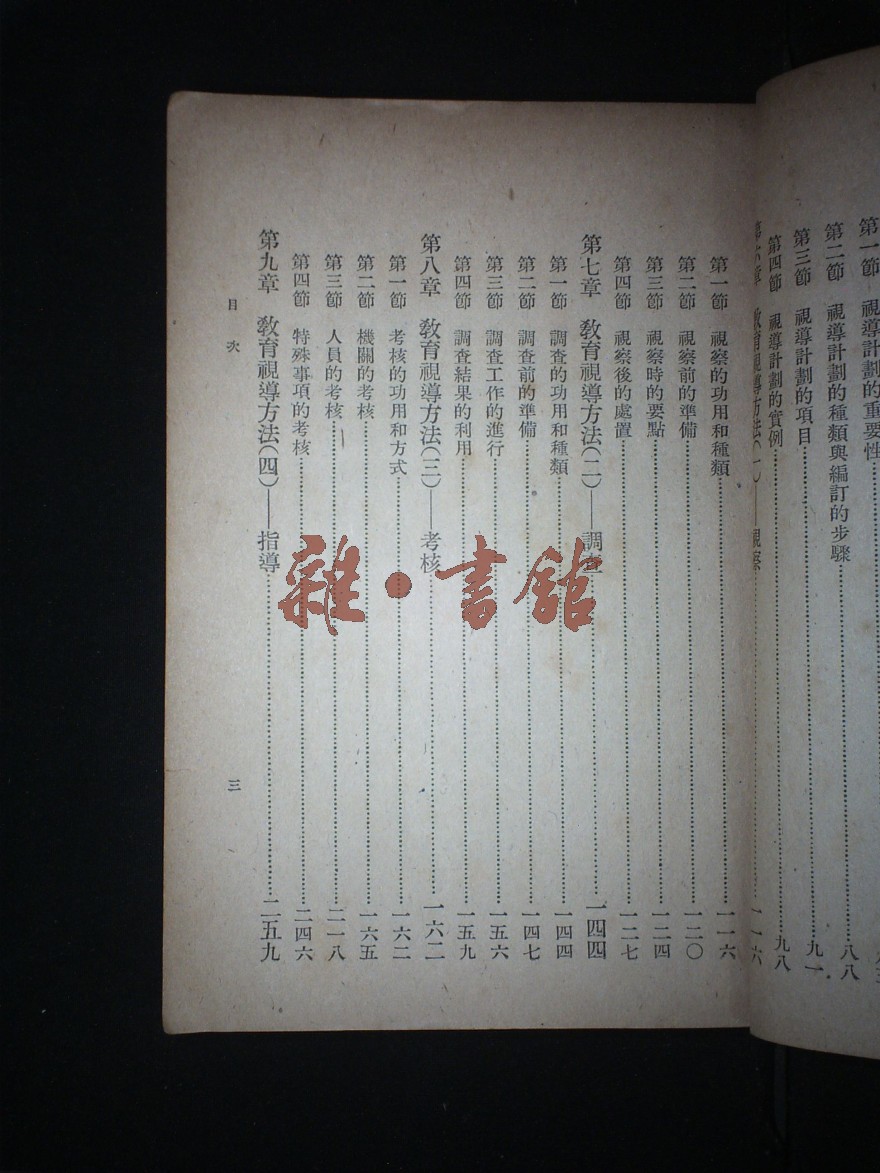 第一節 視導計劃的重要性
第二節 視導計劃的種類與編訂的步驟……八八
第三節 視導計劃的項目……九一
第四節 視導計劃的實例……九八
第六章 教育視導方法(一)——視察……一一六
第一節 視察的功用和種類……一一六
第二節 視察前的準備……一二〇
第三節 視察時的要點……一二四
第四節 視察後的處置……一二七
第七章 教育視導方法(二)——調查……一四四
第一節 調查的功用和種類……一四四
第二節 調查前的準備……一四七
第三節 調查工作的進行……一五六
第四節 調查結果的利用……一五九
第八章 教育視導方法(三)——考核……一六二
第一節 考核的功用和方式……一六二
第二節 機關的考核……一六五
第三節 人員的考核……二一八
第四節 特殊事項的考核……二四六
第九章 教育視導方法(四)——指導……二五九
目次
三
雜·書館